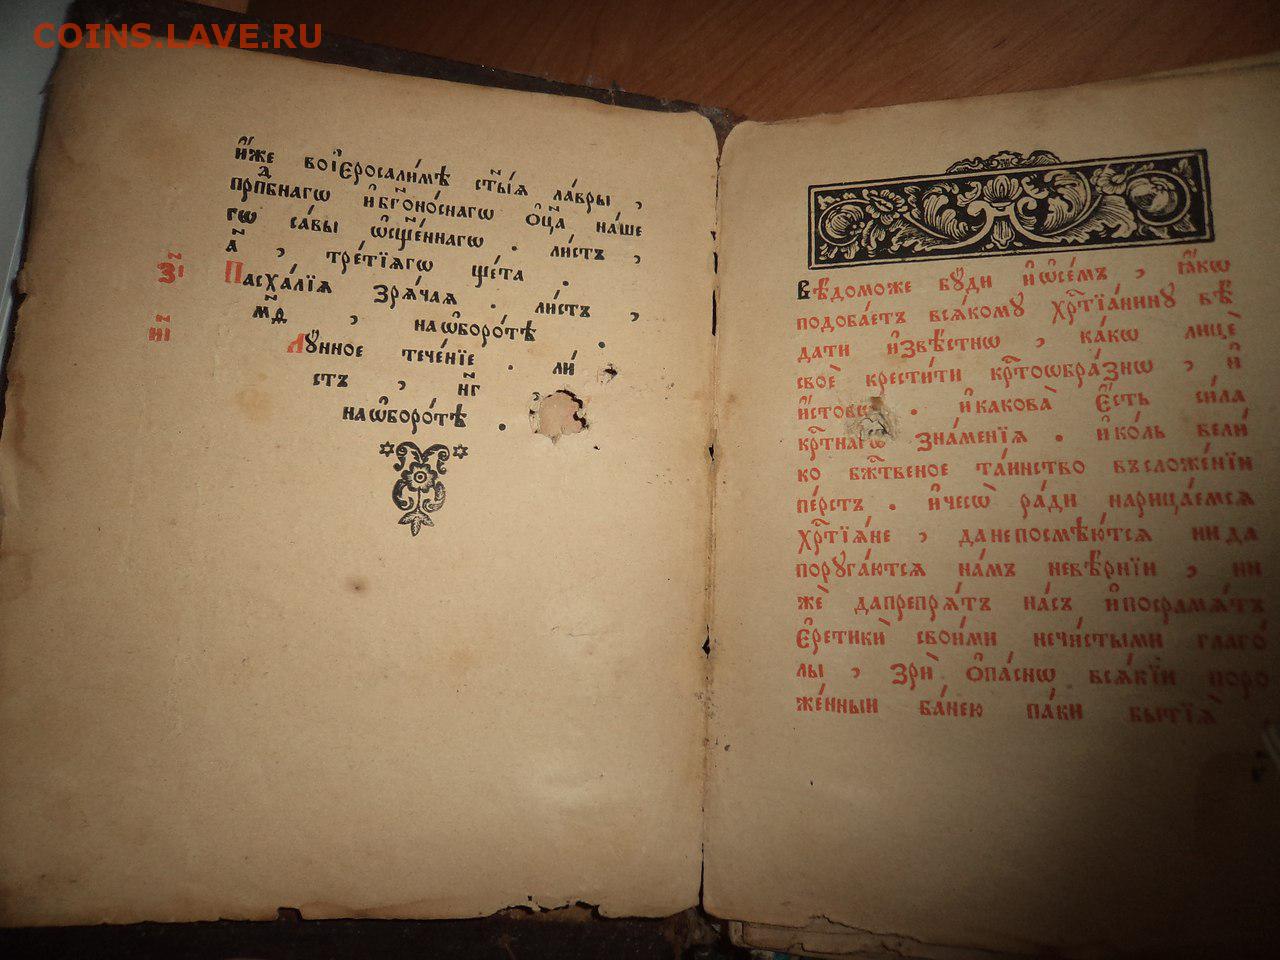 COINS.LAVE.RU
и҆́же воі҆еросали́мѣ ст҃ы́ѧ ла́вры ,
прпⷣбнагѡ и҆бг҃оно́снагѡ ѻ҆ц҃а̀ на́ше
гѡ са́вы ѡ҆сщ҃е́ннагѡ . ли́стъ ,
а҃ , тре́тїѧгѡ ще́та .
з҃і Пасха́лїѧ зрѧ́чаѧ . ли́стъ ,
м҃д , наѡ҆боро́тѣ .
и҃і Лꙋ́нное тече́нїе . ли́
стъ , н҃г ,
наѡ҆боро́тѣ .
Вѣ́доможе бꙋ́ди и҆ѡ҆се́мъ , ꙗ҆́кѡ
подоба́етъ всѧ́комꙋ хрⷭ҇тїа́нинꙋ вѣ́
дати и҆звѣ́стнѡ , ка́кѡ лицѐ
своѐ крести́ти крⷭ҇тоѡбра́знѡ , и҆
и҆́стов . и҆какова̀ є҆́сть си́ла
крⷭ҇тнагѡ зна́менїѧ . и҆ко́ль вели́
ко бж҃твеное та́инство въсложе́нїи
пе́рстъ . и҆чесѡ̀ ра́ди нарица́емсѧ
хрⷭ҇тїѧ́не , данепосмѣю́тсѧ нида
порꙋга́ютсѧ на́мъ невѣ́рнїи , ни
жѐ дапрепрѧ́тъ на́съ и҆посрамѧ́тъ
є҆ретикѝ свои́ми нечи́стыми глаго́
лы , зрѝ ѻ҆па́снѡ всѧ́кїи поро
же́нныи ба́нею па́ки бытїѧ̀